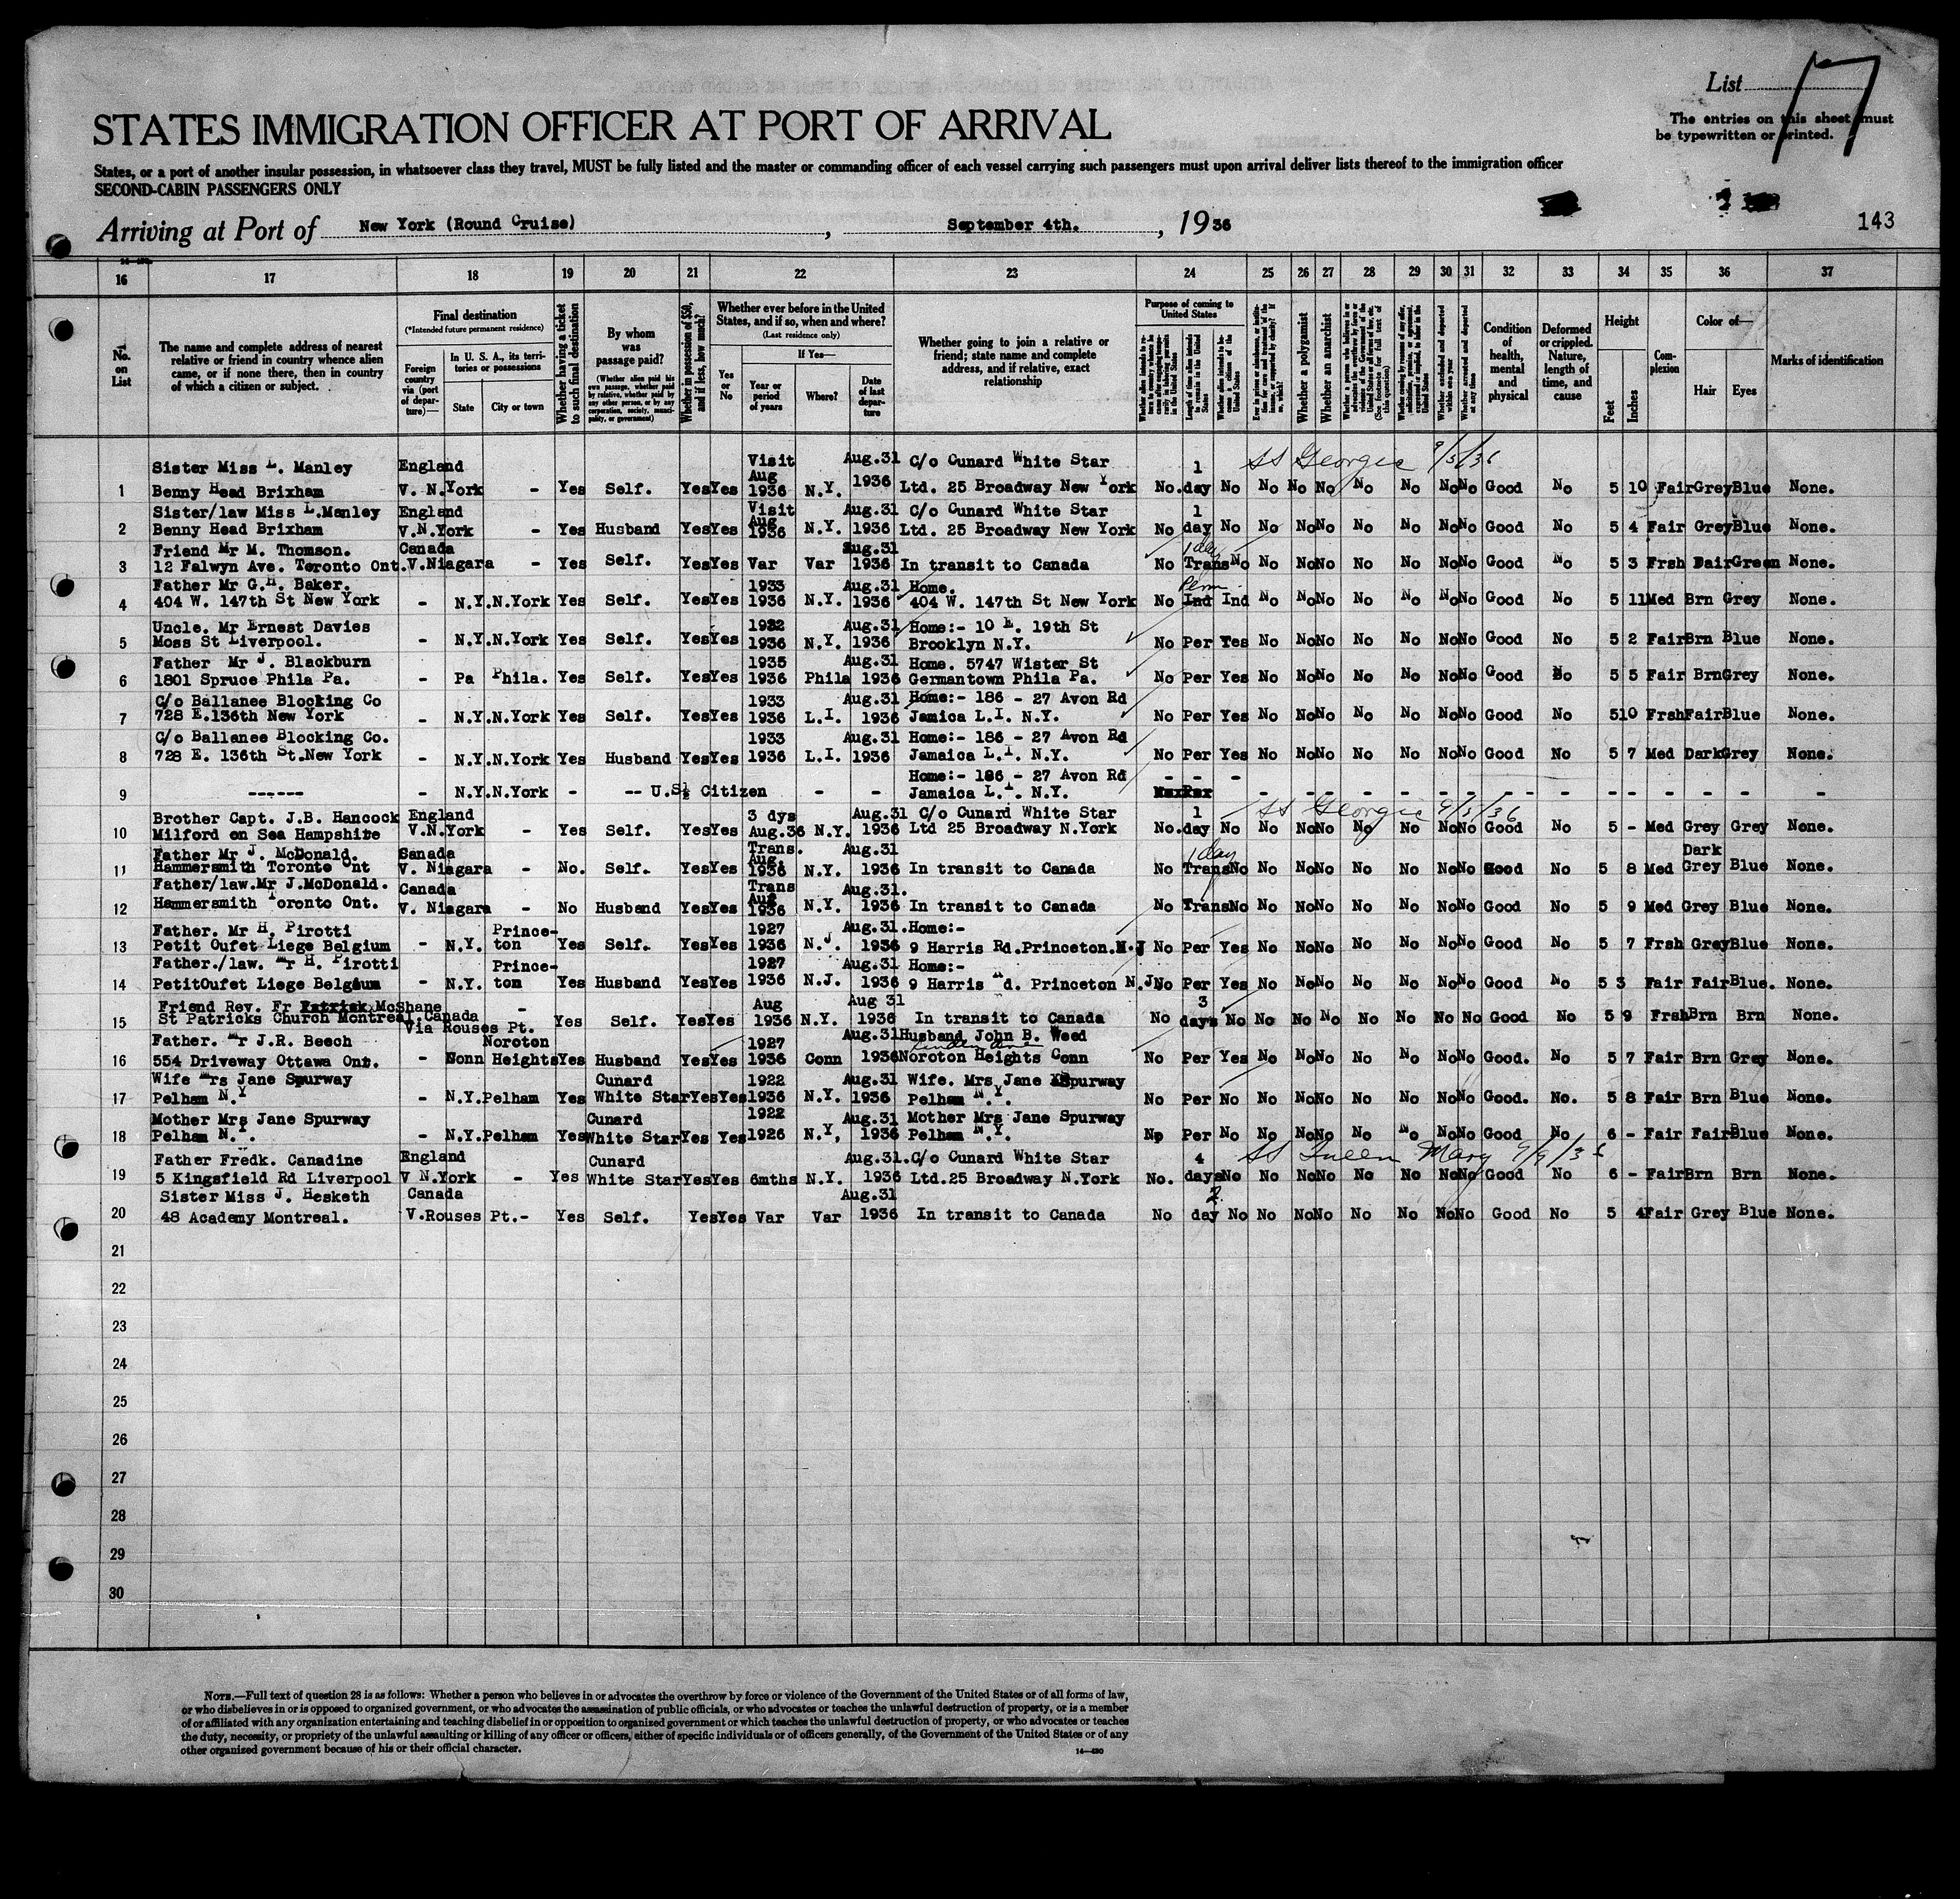 List 17
The entries on this sheet must
be typewritten or printed.
STATES IMMIGRATION OFFICER AT PORT OF ARRIVAL
States, or a port of another insular possession, in whatsoever class they travel, MUST be fully listed and the master or commanding officer of each vessel carrying such passengers must upon arrival deliver lists thereof to the immigration officer
SECOND-CABIN PASSENGERS ONLY
Arriving at Port of New York (Round Cruise), September 4th., 1936
143
16 17 18 19 20 21 22 23 24 25 26 27 28 29 30 31 32 33 34 35 36 37
No. on List
The name and complete address of nearest relative or friend in country whence alien came, or if none there, then in country of which a citizen or subject.
Final destination
(*Intended future permanent residence)
Foreign country via (port of departure)—
In U. S. A., its territories or possessions
State
City or town
Whether having a ticket to such final destination
By whom was passage paid?
(Whether alien paid his own passage, whether paid by relative, whether paid by any other person, or by any corporation, society, municipality, or government)
Whether in possession of $50, and if less, how much?
Whether ever before in the United States, and if so, when and where?
(Last residence only)
Yes or No
If Yes—
Year or period of years
Where?
Date of last departure
Whether going to join a relative or friend; state name and complete address, and if relative, exact relationship
Purpose of coming to United States
Length of time alien intends to remain in the United States
Whether a polygamist
Whether an anarchist
Whether excluded and deported within one year
Whether arrested and deported at any time
Condition of health, mental and physical
Deformed or crippled. Nature, length of time, and cause
Height
Feet
Inches
Complexion
Color of—
Hair
Eyes
Marks of identification
Sister Miss L. Manley England Visit Aug.31 C/o Cunard White Star 1 SS Georgic 9/5/36
1 Benny Head Brixham V. N.York - Yes Self. Yes Yes Aug 1936 N.Y. 1936 Ltd. 25 Broadway New York No. day No No No No No No No No Good No 5 10 Fair Grey Blue None.
Sister/law Miss L.Manley England Visit Aug.31 C/o Cunard White Star 1
2 Benny Head Brixham V.N.York - Yes Husband Yes Yes Aug 1936 N.Y. 1936 Ltd. 25 Broadway New York No day No No No No No No No No Good No 5 4 Fair Grey Blue None.
Friend Mr M. Thomson. Canada Aug.31 1 day
3 12 Falwyn Ave. Toronto Ont. V.Niagara - Yes Self. Yes Yes Var Var 1936 In transit to Canada No Trans No No No No No No No No Good No 5 3 Frsh Dair Green None.
Father Mr G.H. Baker. 1933 Aug.31 Home. Perm
4 404 W. 147th St New York - N.Y. N.York Yes Self. Yes Yes 1936 N.Y. 1936 404 W. 147th St New York No Ind Ind No No No No No No No Good No 5 11 Med Brn Grey None.
Uncle. Mr Ernest Davies 1932 Aug.31 Home:- 10 E. 19th St
5 Moss St Liverpool. - N.Y. N.York Yes Self. Yes Yes 1936 N.Y. 1936 Brooklyn N.Y. No Per Yes No No No No No No No Good No 5 2 Fair Brn Blue None.
Father Mr J. Blackburn 1935 Aug.31 Home. 5747 Wister St
6 1801 Spruce Phila Pa. - Pa Phila. Yes Self. Yes Yes 1936 Phila 1936 Germantown Phila Pa. No Per Yes No No No No No No No Good No 5 5 Fair Brn Grey None.
C/o Ballanee Blocking Co 1933 Aug.31 Home:- 186 - 27 Avon Rd
7 728 E.136th New York - N.Y. N.York Yes Self. Yes Yes 1936 L.I. 1936 Jamica L.I. N.Y. No Per Yes No No No No No No No Good No 5 10 Frsh Fair Blue None.
C/o Ballanee Blocking Co. 1933 Aug.31 Home:- 186 - 27 Avon Rd
8 728 E. 136th St.New York - N.Y. N.York Yes Husband Yes Yes 1936 L.I. 1936 Jamaica L.I. N.Y. No Per Yes No No No No No No No Good No 5 7 Med Dark Grey None.
Home:- 186 - 27 Avon Rd - - -
9 ------ N.Y. N.York - -- U.S. Citizen - - Jamaica L.I. N.Y. - - - - - - - - - - - - - - -
Brother Capt. J.B. Hancock England 3 dys Aug.31 C/o Cunard White Star 1 SS Georgic 9/5/36
10 Milford on Sea Hampshire V.N.York - Yes Self. Yes Yes Aug.36 N.Y. 1936 Ltd 25 Broadway N.York No. day No No No No No No No No Good No 5 - Med Grey Grey None.
Father Mr J. McDonald. Canada Trans. Aug.31 1 day Dark
11 Hammersmith Toronto Ont V. Niagara - No. Self. Yes Yes Aug. 1936 N.Y. 1936 In transit to Canada No Trans No No No No No No No No Good No 5 8 Med Grey Blue None.
Father/law.Mr J.McDonald. Canada Trans Aug.31.
12 Hammersmith Toronto Ont. V. Niagara - No Husband Yes Yes Aug 1936 N.Y. 1936 In transit to Canada No Trans No No No No No No No No Good No 5 9 Med Grey Blue None.
Father. Mr H. Pirotti Prince- 1927 Aug.31. Home:-
13 Petit Oufet Liege Belgium - N.Y. ton Yes Self. Yes Yes 1936 N.J. 1936 9 Harris Rd.Princeton.N.J No Per Yes No No No No No No No Good No 5 7 Frsh Grey Blue None.
Father./law. Mr H. Pirotti Prince- 1927 Aug.31 Home:-
14 PetitOufet Liege Belgium - N.Y. ton Yes Husband Yes Yes 1936 N.J. 1936 9 Harris Rd. Princeton N.J No Per Yes No No No No No No No Good No 5 3 Fair Fair Blue. None.
Friend Rev. Fr Patrick McShane - Aug Aug 31 3
15 St Patricks Church Montreal Canada Via Rouses Pt. Yes Self. Yes Yes 1936 N.Y. 1936 In transit to Canada No days No No No No No No No No Good No 5 9 Frsh Brn Brn None.
Father. Mr J.R. Beech Noroton 1927 Aug.31 Husband John B. Weed
16 554 Driveway Ottawa Ont. - Conn Heights Yes Husband Yes Yes 1936 Conn 1936 Noroton Heights Conn No Per Yes No No No No No No No Good. No 5 7 Fair Brn Grey None.
Wife Mrs Jane Spurway Cunard 1922 Aug.31 Wife. Mrs Jane Spurway
17 Pelham N.Y - N.Y. Pelham Yes White Star Yes Yes 1936 N.Y. 1936 Pelham N.Y. No Per No No No No No No No No Good. No. 5 8 Fair Brn Blue None.
Mother Mrs Jane Spurway Cunard 1922 Aug.31 Mother Mrs Jane Spurway
18 Pelham N.Y. - N.Y. Pelham Yes White Star Yes Yes 1926 N.Y, 1936 Pelham N.Y. No Per No No No No No No No No Good No 6 - Fair Fair Blue None.
Father Fredk. Canadine England Cunard Aug.31. C/o Cunard White Star 4 SS Queen Mary 9/9/36
19 5 Kingsfield Rd Liverpool V N.York - Yes White Star Yes Yes 6mths N.Y. 1936 Ltd.25 Broadway N.York No. days No No No No No No No No Good No 6 - Fair Brn Brn None.
Sister Miss J. Hesketh Canada Aug.31 2
20 48 Academy Montreal. V.Rouses Pt.- Yes Self. Yes Yes Var Var 1936 In transit to Canada No day No No No No No No No No Good No 5 4 Fair Grey Blue None.
21
22
23
24
25
26
27
28
29
30
NOTE.—Full text of question 28 is as follows: Whether a person who believes in or advocates the overthrow by force or violence of the Government of the United States or of all forms of law,
or who disbelieves in or is opposed to organized government, or who advocates the assassination of public officials, or who advocates or teaches the unlawful destruction of property, or is a member
of or affiliated with any organization entertaining and teaching disbelief in or opposition to organized government or which teaches the unlawful destruction of property, or who advocates or teaches
the duty, necessity, or propriety of the unlawful assaulting or killing of any officer or officers, either of specific individuals or of officers generally, of the Government of the United States or of any
other organized government because of his or their official character.
14—430